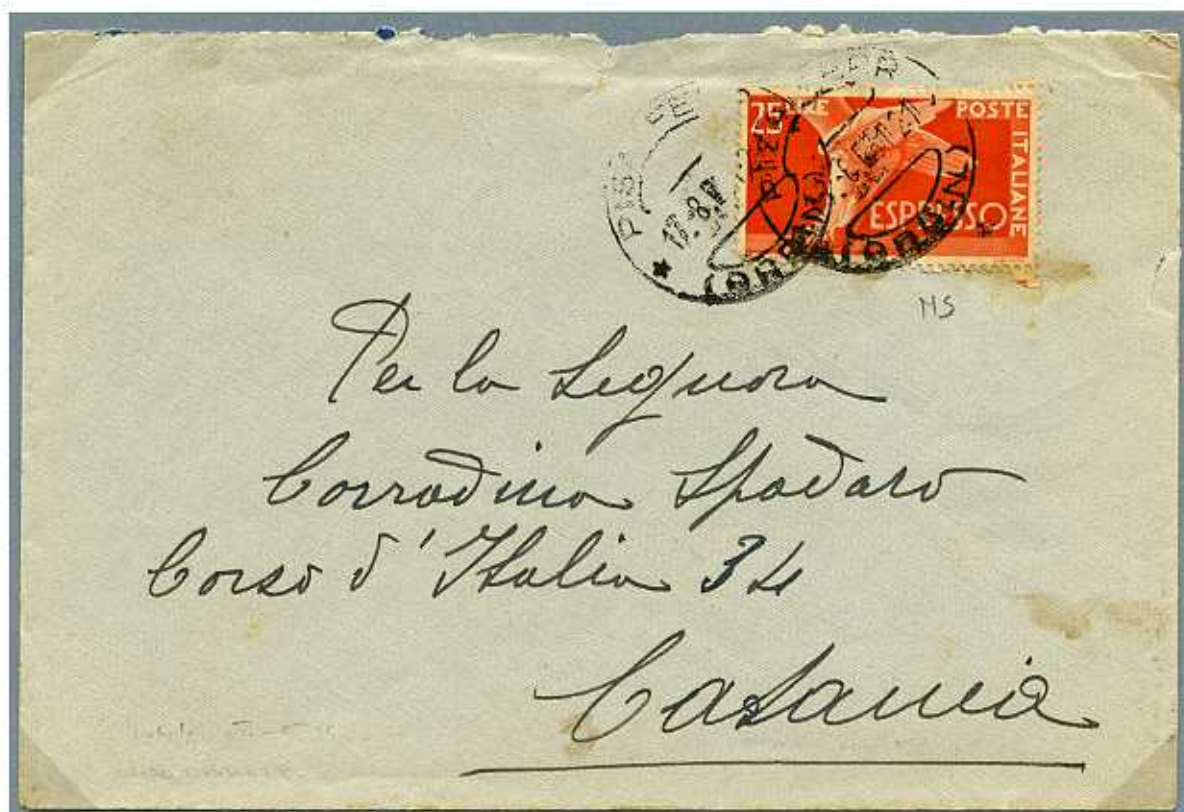 25 LIRE POSTE ITALIANE
ESPRESSO
MS
Per la Signora
Corradina Spadaro
Corso d'Italia 34
Catania